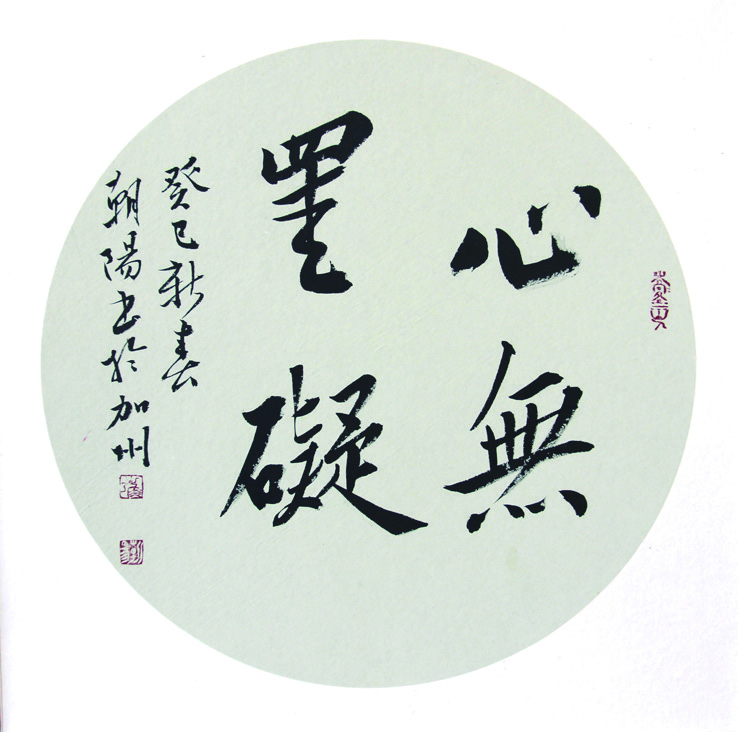 心無
罣礙
癸巳新春
朝陽書於加州